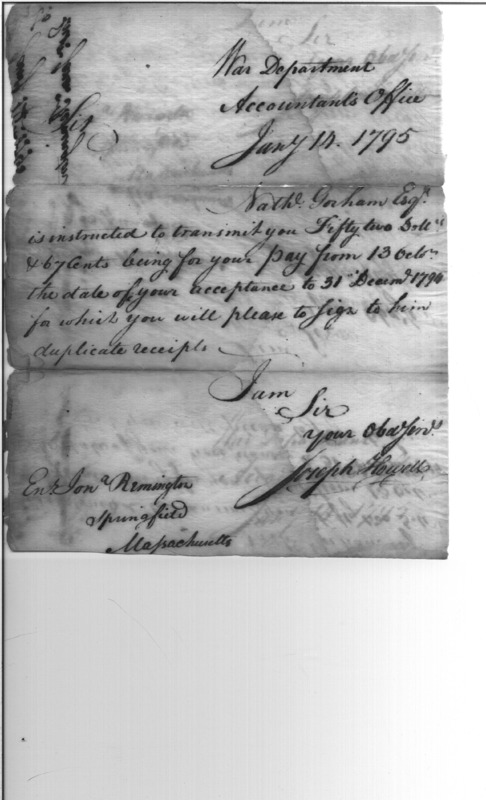 War Department
Accountants Office
Jany 14. 1795
Sir
Nathl. Gorham Esqr.
is instructed to transmit you Fifty two Dolls
& 67 Cents being for your pay from 13 Octo.
the date of your acceptance to 31st Decemr. 1794
for which you will please to sign to him
duplicate receipts
I am
Sir
Your Obd Servt
Joseph Howell
Ens Jonn. Remington
Springfield
Massachusetts